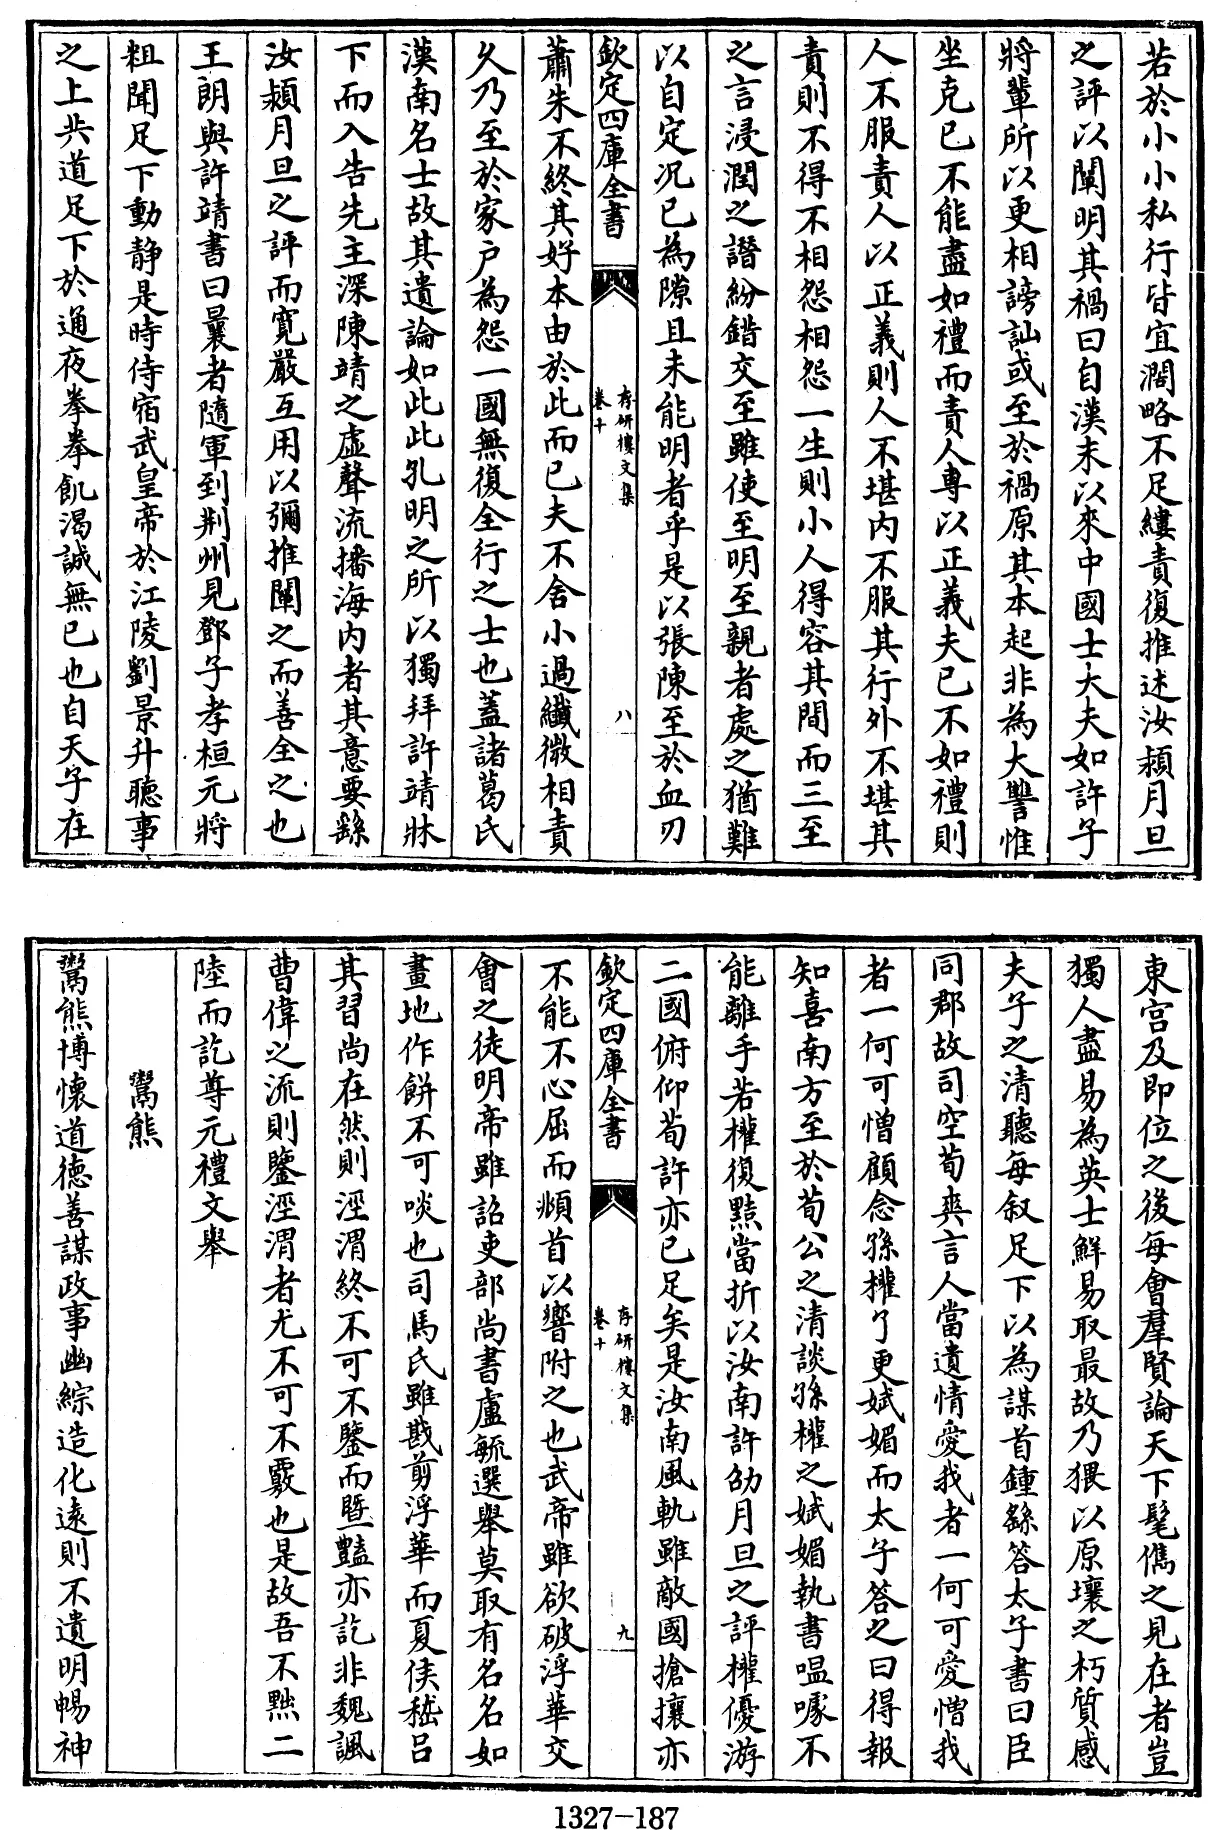 若於小小私行皆宜濶略不足縷責復推述汝潁月旦
之評以闡明其禍曰自漢末以來中國士大夫如許子
將輩所以更相謗訕或至於禍原其本起非為大讐惟
坐克已不能盡如禮而責人專以正義夫已不如禮則
人不服責人以正義則人不堪内不服其行外不堪其
責則不得不相怨相怨一生則小人得容其間而三至
之言浸潤之譖紛錯交至雖使至明至親者處之猶難
以自定况已為隙且未能明者乎是以張陳至於血刃
欽定四庫全書
存研樓文集
卷十
八
蕭朱不終其好本由於此而已夫不舍小過纎微相責
乆乃至於家户為怨一國無復全行之士也蓋諸葛氏
漢南名士故其遺論如此此孔明之所以獨拜許靖牀
下而入告先主深陳靖之虛聲流播海内者其意要繇
汝潁月旦之評而寛嚴互用以彌推闡之而善全之也
王朗與許靖書曰曩者隨軍到荆州見鄧子孝桓元將
粗聞足下動静是時侍宿武皇帝於江陵劉景升聽事
之上共道足下於通夜拳拳飢渴誠無已也自天子在
東宫及即位之後每會羣賢論天下髦儁之見在者豈
獨人盡易為英士鮮易取最故乃猥以原壤之朽質感
夫子之清聽每叙足下以為謀首鍾繇答太子書曰臣
同郡故司空荀爽言人當遺情愛我者一何可愛憎我
者一何可憎顧念孫權了更娬媚而太子答之曰得報
知喜南方至於荀公之清談孫權之娬媚執書嗢噱不
能離手若權復黠當折以汝南許劭月旦之評權優游
二國俯仰荀許亦已足矣是汝南風軌雖敵國搶攘亦
欽定四庫全書
存研樓文集
卷十
九
不能不心屈而頫首以響附之也武帝雖欲破浮華交
會之徒明帝雖詔吏部尚書盧毓選舉莫取有名名如
畫地作餅不可啖也司馬氏雖戡剪浮華而夏侯嵇吕
其習尚在然則涇渭終不可不鑒而暨豔亦訖非魏諷
曹偉之流則鑒涇渭者尤不可不覈也是故吾不黜二
陸而訖尊元禮文舉
鬻熊
鬻熊博懷道德善謀政事幽綜造化遠則不遺明暢神
1327-187